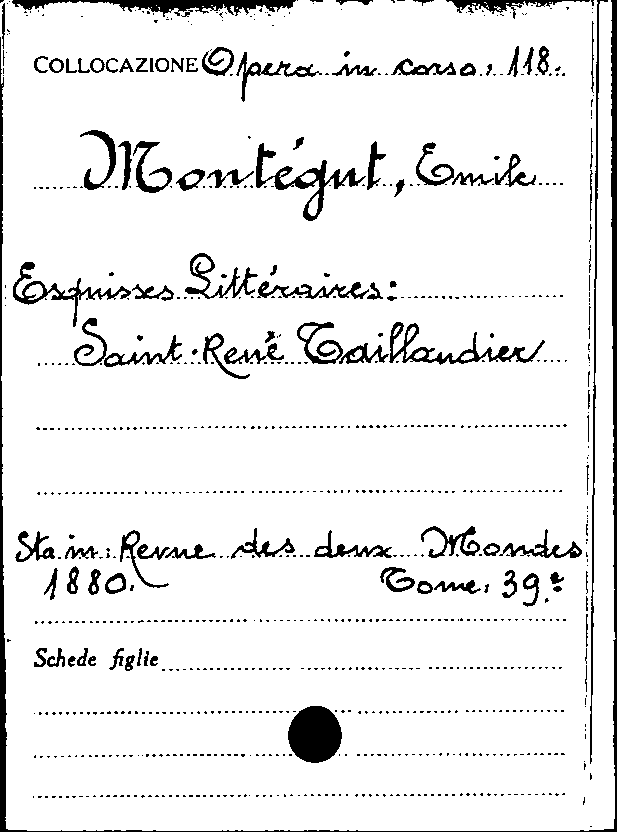 COLLOCAZIONE Opera in corso, 118.
Montégut, Emile
Esquisses Littéraires:
Saint-René Taillandier
Sta in: Revue des deux Mondes
1880. Tome, 39.e
Schede figlie